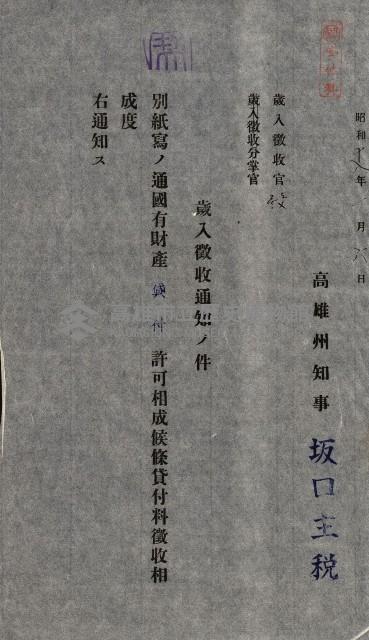 昭和 年 月 日
高雄州知事 坂口主税
歲入徵收官 殿
歲入徵收分掌官
歲入徵收通知ノ件
別紙寫ノ通國有財產 貸付 許可相成候條貸付料徵收相
成度
右通知ス